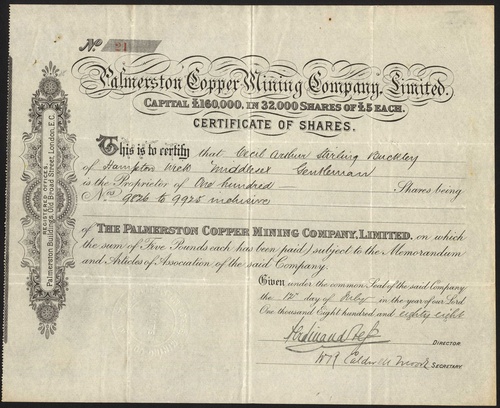 No. 21
Palmerston Copper Mining Company, Limited.
CAPITAL £160,000, IN 32,000 SHARES OF £5 EACH.
CERTIFICATE OF SHARES.
This is to certify that Cecil Arthur Stirling Buckley
of Hampton Wick Middlesex Gentleman
is the Proprietor of One hundred Shares being
Nos 9826 to 9925 inclusive
of THE PALMERSTON COPPER MINING COMPANY, LIMITED, on which
the sum of Five Pounds each has been paid, subject to the Memorandum
and Articles of Association, of the said Company.
Given under the common Seal of the said Company
the 12th day of in the year of our Lord
One thousand Eight hundred and eighty eight
Ferdinand
DIRECTOR
Caldwell Moore SECRETARY
REGISTERED OFFICES,
Palmerston Buildings, Old Broad Street, London, E.C.